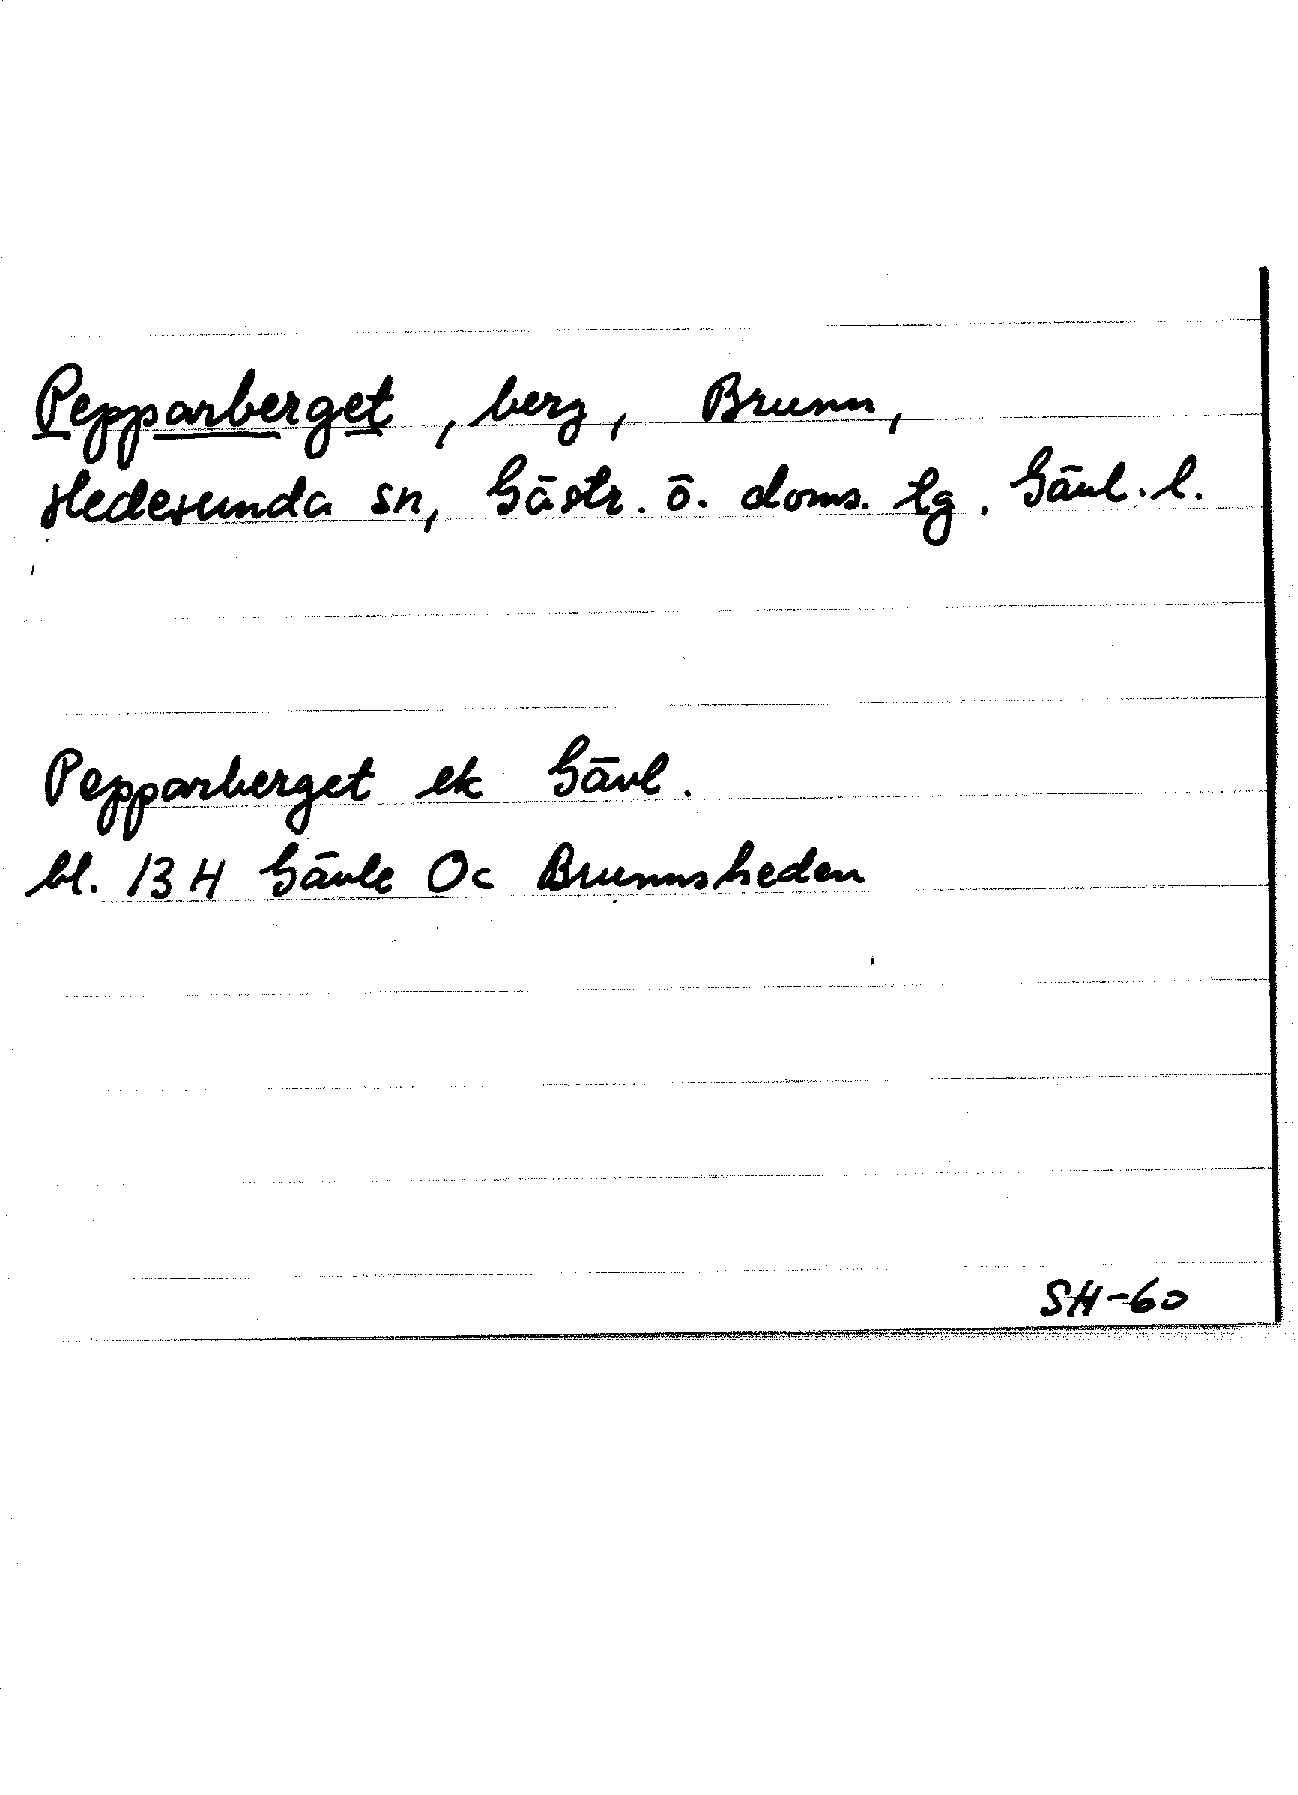 Pepparberget, berg, Brunn,
Hedesunda sn, Gästr. ö. doms. tg. Gävl. l.
Pepparberget ek Gävl.
bl. 13 H Gävle Oc Brunnsheden
SH-60